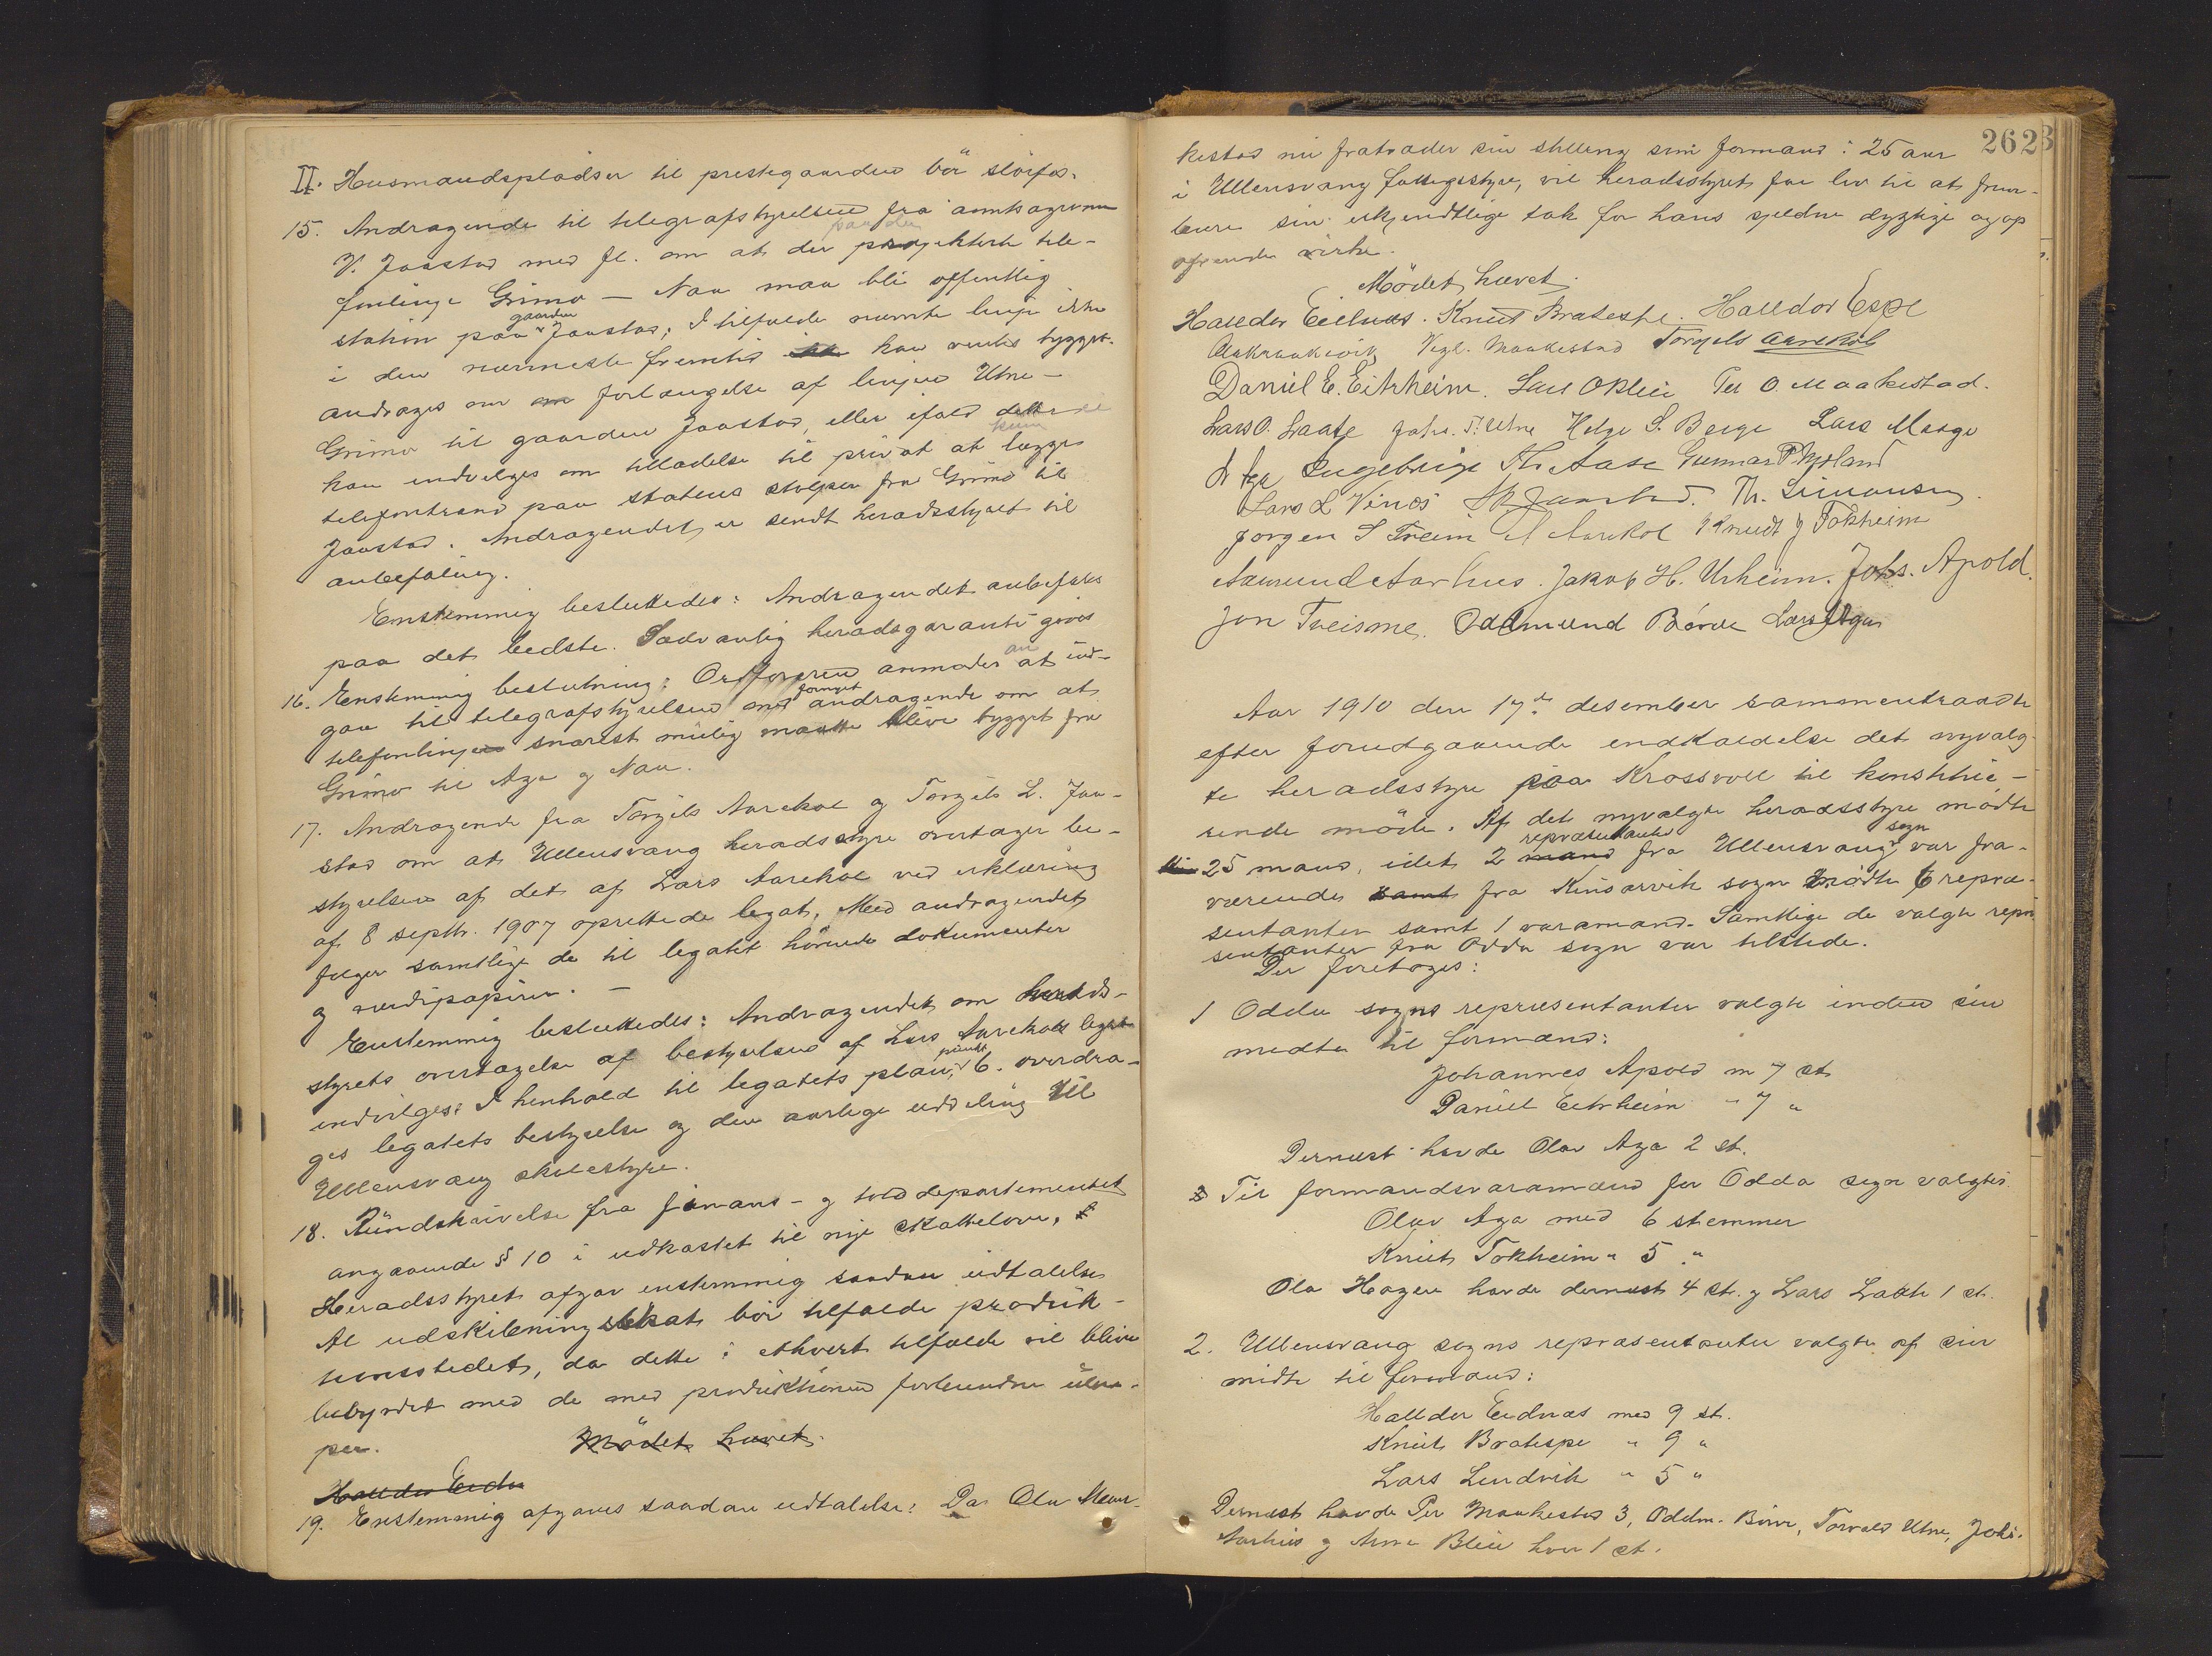 II. Husmandspladser til prestegaarden bör slöifes.
15. Andragende til telegrafstyrelsen fra amtsagronom
V. Jaastad med fl. om at der paa den projekterte tele-
fonlinje Grimo — Naa maa bli offentlig
station paa gaarden Jaastad; I tilfælde nævnte linje ikke
i den nærmeste fremtid kan ventes bygget.
andrages om forlængelse af linjen Utne —
Grimo til gaarden Jaastad, eller ifald dette ei
kan indvilges om tilladelse til privat at lægge
telefontraad paa statens stolper fra Grimo til
Jaastad. Andragendet er sendt heradsstyret til
anbefaling.
Enstemmig besluttedes: Andragendet anbefales
paa det bedste. Sædvanlig heradsgaranti gives
16. Enstemmig beslutning: Ordføreren anmodes an at ind-
gaa til telegrafstyrelsen med fornyet andragende om at
telefonlinjen snarest mulig maatte blive bygget fra
Grimo til Aga og Naa.
17. Andragende fra Torgils Aarekol og Torgils L. Jaa-
stad om at Ullensvang heradsstyre overtager be-
styrelsen af det af Lars Aarekol ved erklæring
af 8 septbr. 1907 oprettede legat. Med andragendet
følger samtlige de til legatet hörende dokumenter
og verdipapirer. —
Enstemmig besluttedes: Andragendet om herads-
styrets overtagelse af bestyrelsen af Lars Aarekols legat
indvilges: I henhold til legatets plan, punkt 6. overdra-
ges legatets bestyrelse og den aarlige uddeling til
Ullensvang skolestyre.
18. Rundskrivelse fra finans- og tolddepartementet
angaaende § 10 i udkastet til nye skattelove.
Heradsstyret afgav enstemmig saadan udtalelse
At udskibningsskat bör tilfalde produk-
tionsstedet, da dette i ethvert tilfælde vil blive
bebyrdet med de med produktionen forbundne ulem-
per. Mödet hævet.
Halldor Eidn
19. Enstemmig afgaves saadan udtalelse: Da Olav Maa-
262
kestad nu fratræder sin stilling som formand i 25 aar
i Ullensvang fattigstyre, vil heradsstyret faa lov til at frem-
bære sin erkjendtlige tak for hans sjeldne dygtige og op
ofrende virke.
Mödet hævet.
Halldor Eidnes. Knut Bratespe. Halldor Espe
Vigl. Maakestad Torgils Aarekol
Daniel E. Eitrheim. Lars O Kleiv Per O Maakestad.
Lars O. Laate Johs. T. Utne Helge S. Berge Lars Mauge
O Aga Engebrigt Th. Aase Gunnar P. Mæland
Lars L Vinæs Jaastad. Th. Simonsen.
Jørgen S Freim A Aarekol Knudt J Tokheim
Aamund Aarhus. Jakob H. Urheim. Johs. Apold.
Jon Tveisme. Oddmund Börve Lars Aga
Aar 1910 den 17de desember sammentraadte
efter forudgaaende indkaldelse det nyvalg-
te heradsstyre paa Krossvoll til konstitue-
rende möde. Af det nyvalgte heradsstyre mödte
25 mand, idet 2 mand repræsentanter fra Ullensvang sogn var fra-
værende samt fra Kinsarvik sogn mödte 6 repræ-
sentanter samt 1 varamand. Samtlige de valgte repræ
sentanter fra Odda sogn var tilstede.
Der foretoges:
1 Odda sogns repræsentanter valgte inden sin
midte til formænd:
Johannes Apold m 7 st.
Daniel Eitrheim " 7 "
Dernæst havde Olav Aga 2 st.
Til formandsvaramænd for Odda sogn valgtes
Olav Aga med 6 stemmer
Knut Tokheim " 5 "
Ola Hagen havde dernæst 4 st. og Lars Laate 1 st.
2. Ullensvang sogns repræsentanter valgte af sin
midte til formænd:
Halldor Eidnæs med 9 st.
Knut Bratespe " 9 "
Lars Lindvik " 5 "
Dernæst havde Per Maakestad 3, Oddm. Börve, Torvald Utne, Johs.
Aarhus og Arne Bleie hver 1 st.